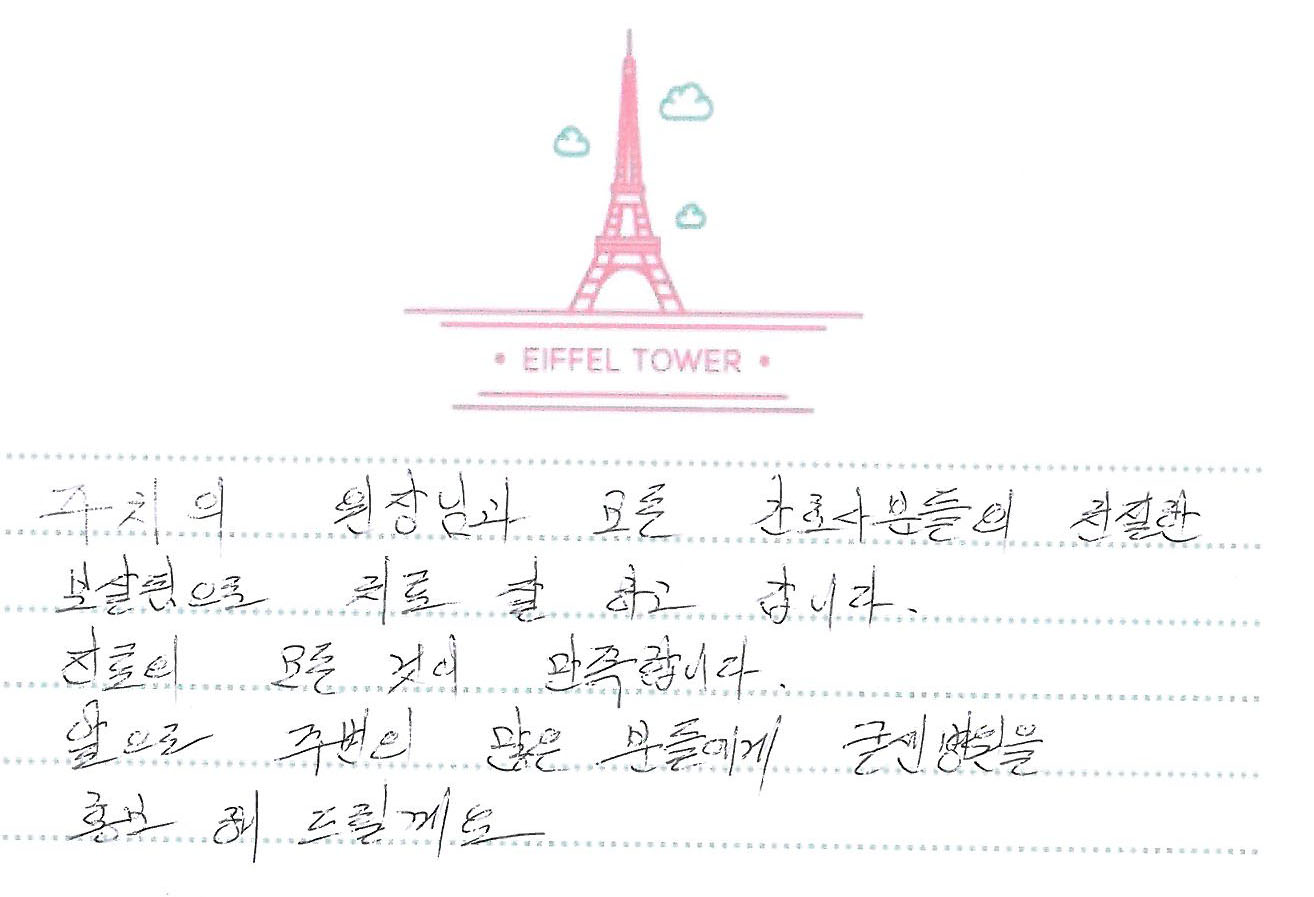 • EIFFEL TOWER •
주치의 원장님과 모든 간호사분들의 친절한
보살핌으로 치료 잘 하고 갑니다.
진료의 모든 것이 만족합니다.
앞으로 주변의 많은 분들에게 굳센병원을
홍보 해 드릴께요